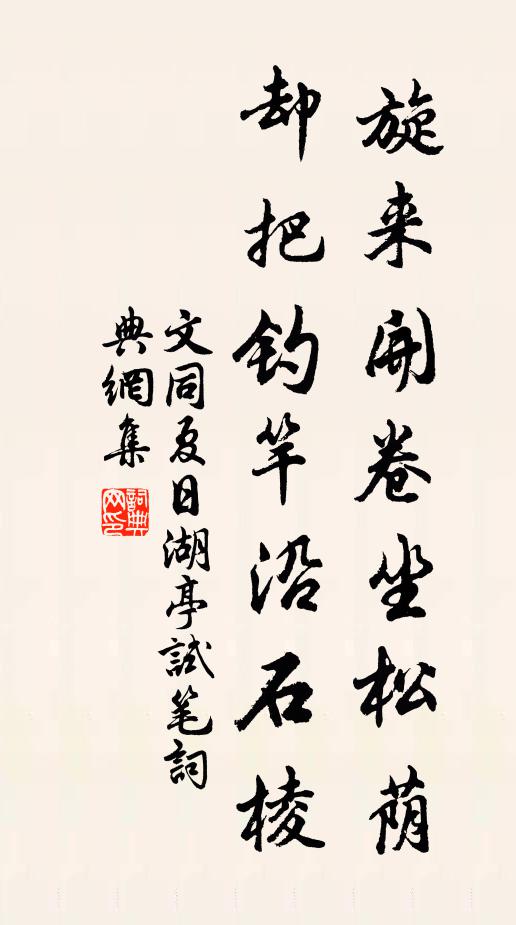 旋来開卷坐松蔭
却把釣竿沿石棱
文同夏日湖亭試笔詞
典網集
詞典网印